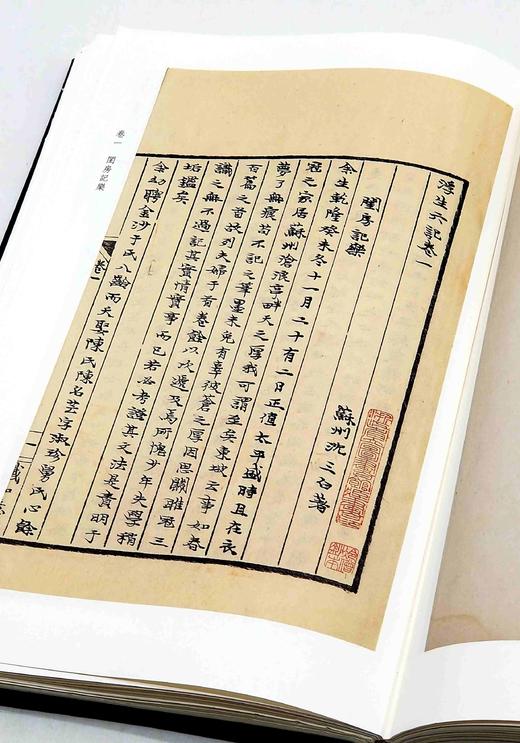 浮生六記卷一
蘇州沈三白著
閨房記樂
余生乾隆癸未冬十一月二十有二日正值太平盛時且在衣
冠之家居蘇州滄浪亭畔天之厚我可謂至矣東坡云事如春
夢了無痕苟不記之筆墨未免有辜彼蒼之厚因思關雎冠三
百篇之首故列夫婦于首卷餘以次遞及焉所愧少年失學稍
識之無不過記其實情實事而已若必考證其文法是責明于
垢鑑矣
余幼聘金沙于氏八齡而夭娶陳氏陳名芸字淑珍舅氏心餘
卷一
卷一 閨房記樂